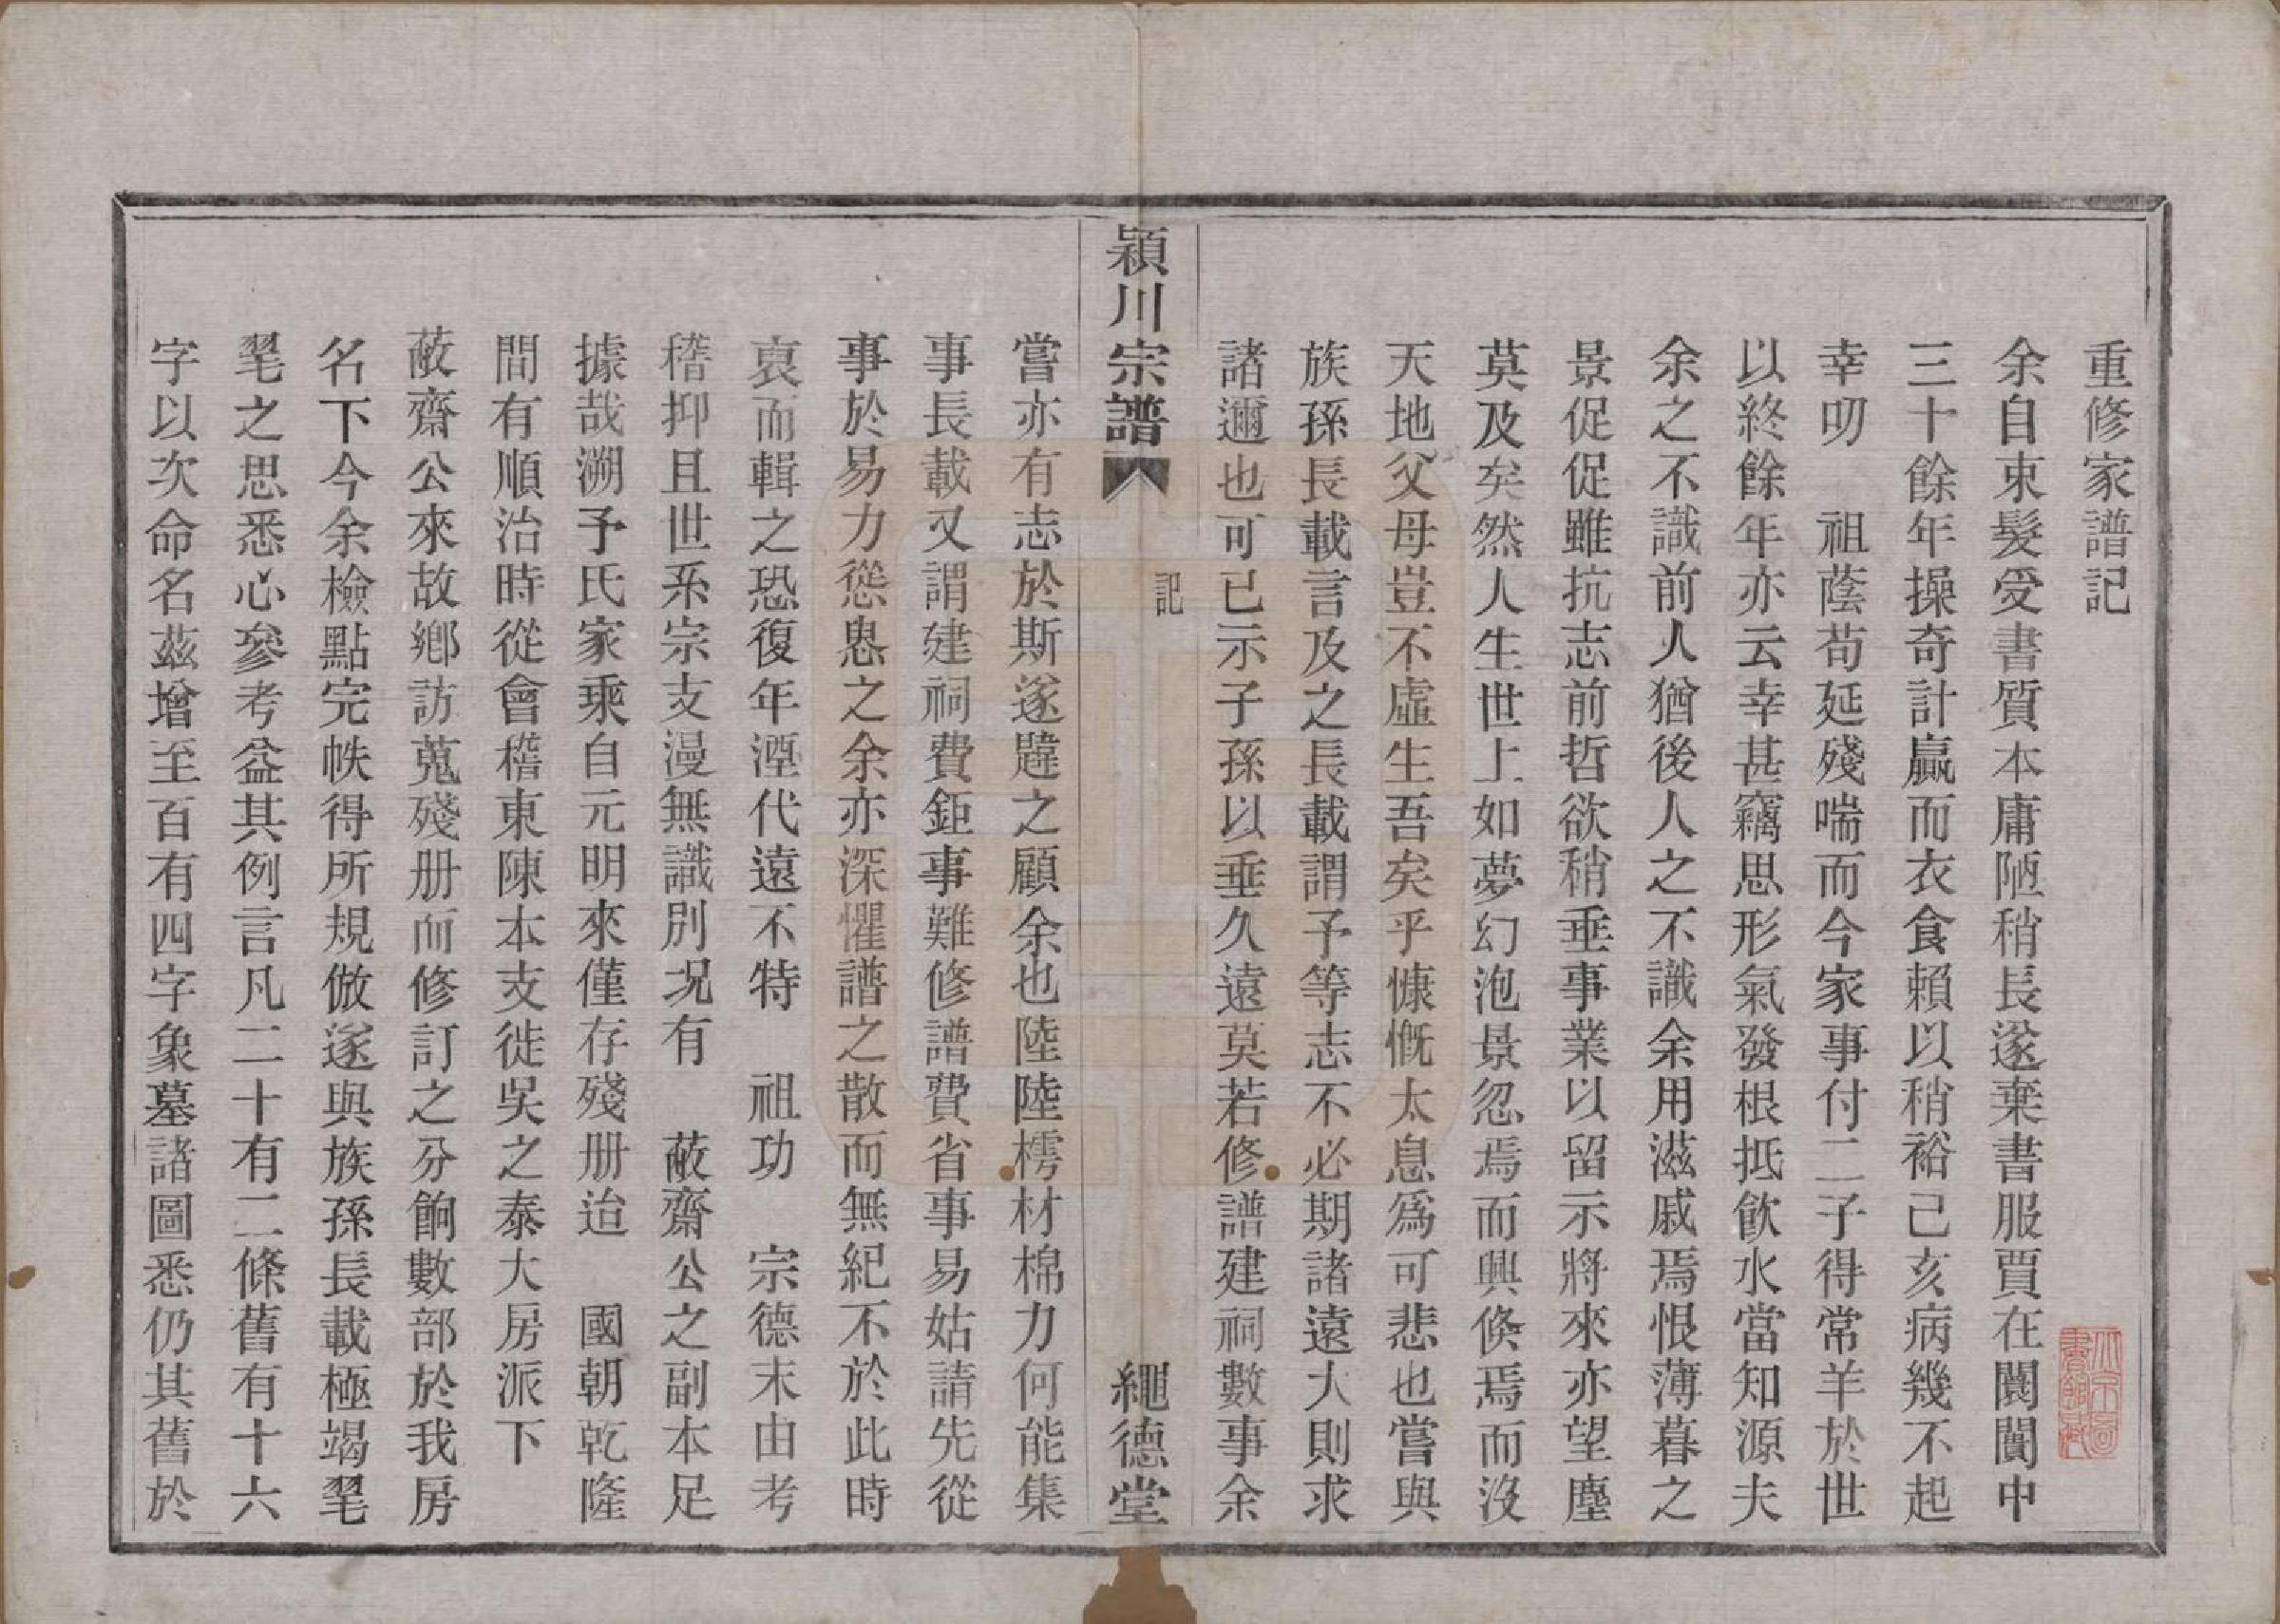 重修家譜記
余自束髮受書質本庸陋稍長遂棄書服賈在闤闠中
三十餘年操奇計贏而衣食賴以稍裕己亥病幾不起
幸叨　祖蔭苟延殘喘而今家事付二子得常羊於世
以終餘年亦云幸甚竊思形氣發根抵飲水當知源夫
余之不識前人猶後人之不識余用滋戚焉恨薄暮之
景促促雖抗志前哲欲稍垂事業以留示將來亦望塵
莫及矣然人生世上如夢幻泡景忽焉而興倏焉而沒
天地父母豈不虛生吾矣乎慷慨太息爲可悲也嘗與
族孫長載言及之長載謂予等志不必期諸遠大則求
諸邇也可已示子孫以垂久遠莫若修譜建祠數事余
潁川宗譜
記
繩德堂
嘗亦有志於斯遂韙之顧余也陸陸樗材棉力何能集
事長載又謂建祠費鉅事難修譜費省事易姑請先從
事於易力慫恿之余亦深懼譜之散而無紀不於此時
裒而輯之恐復年湮代遠不特　祖功　宗德末由考
稽抑且世系宗支漫無識別况有　蔽齋公之副本足
據哉溯予氏家乘自元明來僅存殘册迨　國朝乾隆
間有順治時從會稽東陳本支徙吳之泰大房派下
蔽齋公來故鄉訪蒐殘册而修訂之分餉數部於我房
名下今余檢點完帙得所規倣遂與族孫長載極竭毣
毣之思悉心參考益其例言凡二十有二條舊有十六
字以次命名茲增至百有四字象墓諸圖悉仍其舊於